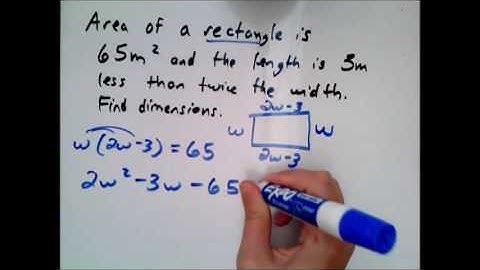 Area of a rectangle is
65m² and the length is 3m
less than twice the width.
Find dimensions.
2w-3
w w
2w-3
w(2w-3) = 65
2w² -3w -65
EXPO